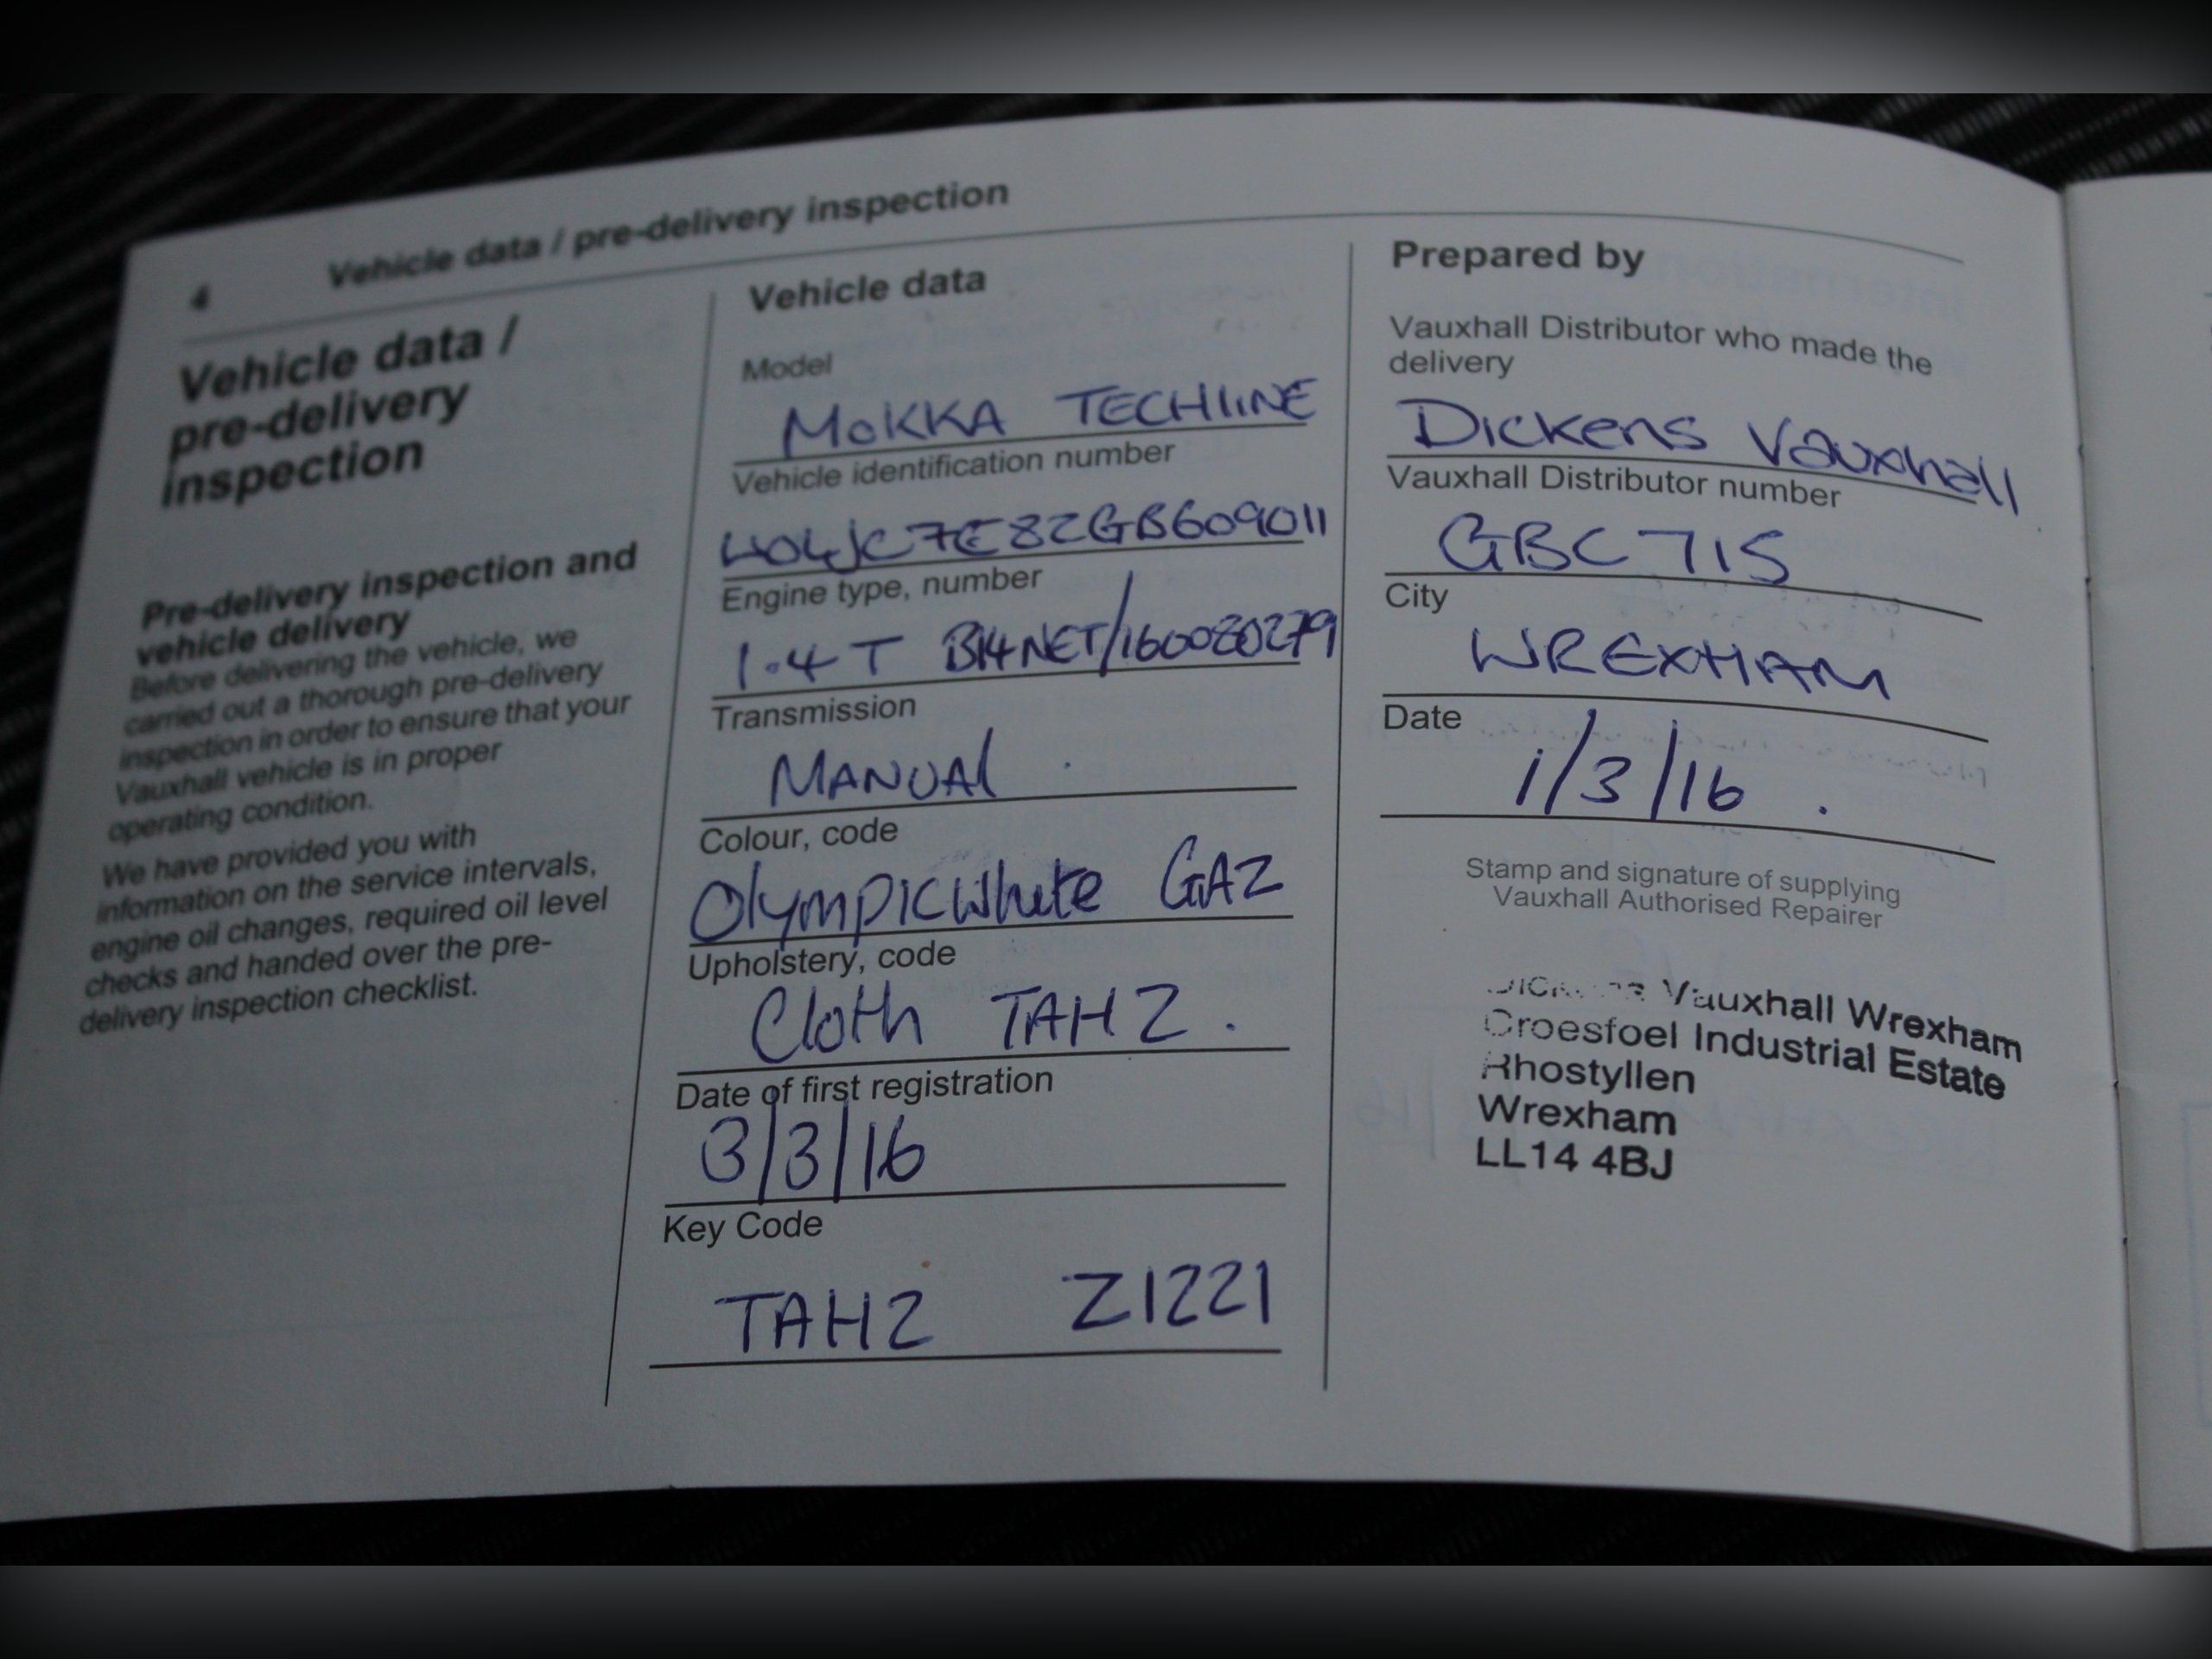 4 Vehicle data / pre-delivery inspection
Vehicle data /
pre-delivery
inspection
Pre-delivery inspection and
vehicle delivery
Before delivering the vehicle, we
carried out a thorough pre-delivery
inspection in order to ensure that your
Vauxhall vehicle is in proper
operating condition.
We have provided you with
information on the service intervals,
engine oil changes, required oil level
checks and handed over the pre-
delivery inspection checklist.
Vehicle data
Model
MOKKA TECHLINE
Vehicle identification number
W0LJC7E82GB609011
Engine type, number
1.4 T B14NET/160080279
Transmission
MANUAL
Colour, code
Olympic White GAZ
Upholstery, code
Cloth TAH2.
Date of first registration
3/3/16
Key Code
TAH2 Z1221
Prepared by
Vauxhall Distributor who made the
delivery
Dickens Vauxhall
Vauxhall Distributor number
GBC 715
City
WREXHAM
Date
1/3/16.
Stamp and signature of supplying
Vauxhall Authorised Repairer
Vauxhall Wrexham
Croesfoel Industrial Estate
Rhostyllen
Wrexham
LL14 4BJ